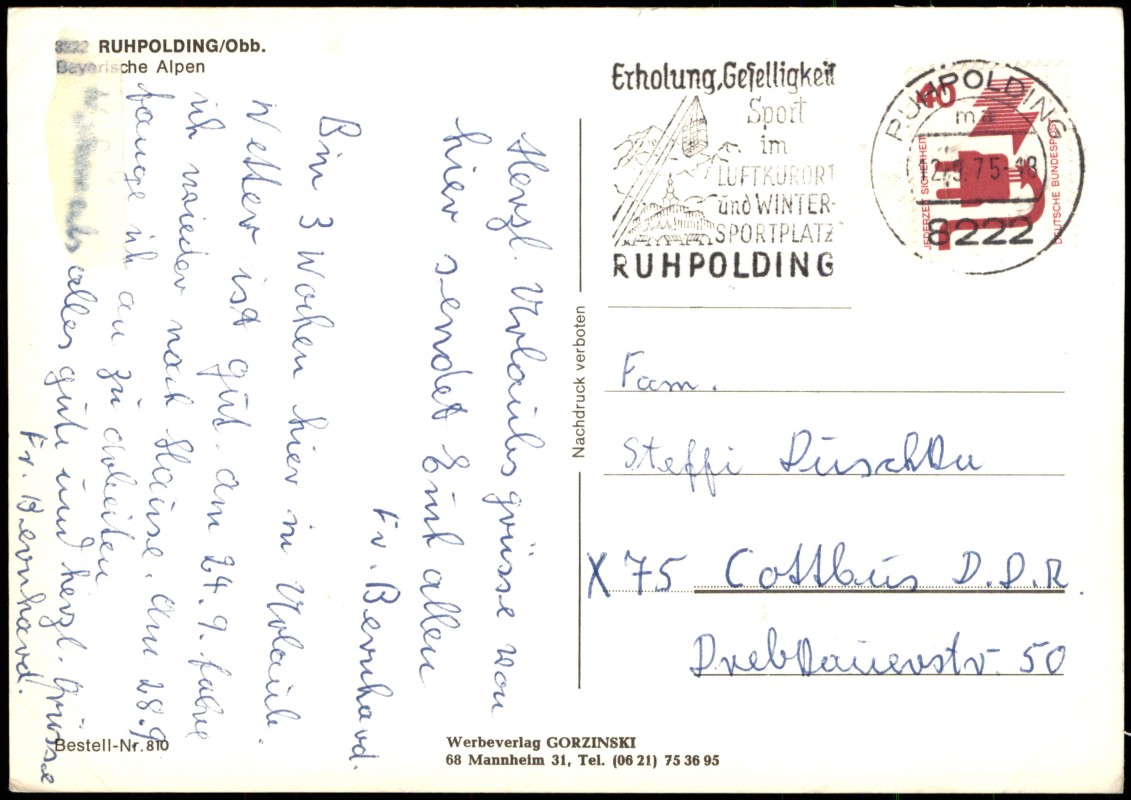 8222 RUHPOLDING/Obb.
Bayerische Alpen
Herzl. Urlaubsgrüsse von
hier sendet Euch allen
Fr. Bernhard.
Bin 3 Wochen hier in Urlaub.
Wetter ist gut. Am 24.9. fahre
ich wieder nach Hause. Am 28.9
fange ich an zu arbeiten
alles gute und herzl. Grüsse
Fr. Bernhard.
Bestell-Nr. 810
Werbeverlag GORZINSKI
68 Mannheim 31, Tel. (06 21) 75 36 95
Nachdruck verboten
Erholung, Geselligkeit
Sport
im
LUFTKURORT
und WINTER-
SPORTPLATZ
RUHPOLDING
RUHPOLDING
ma
9.75-18
8222
40
JEDERZEIT SICHERHEIT
DEUTSCHE BUNDESPOST
Fam.
Steffi Duschka
X 75 Cottbus D.D.R.
Drebkauerstr. 50